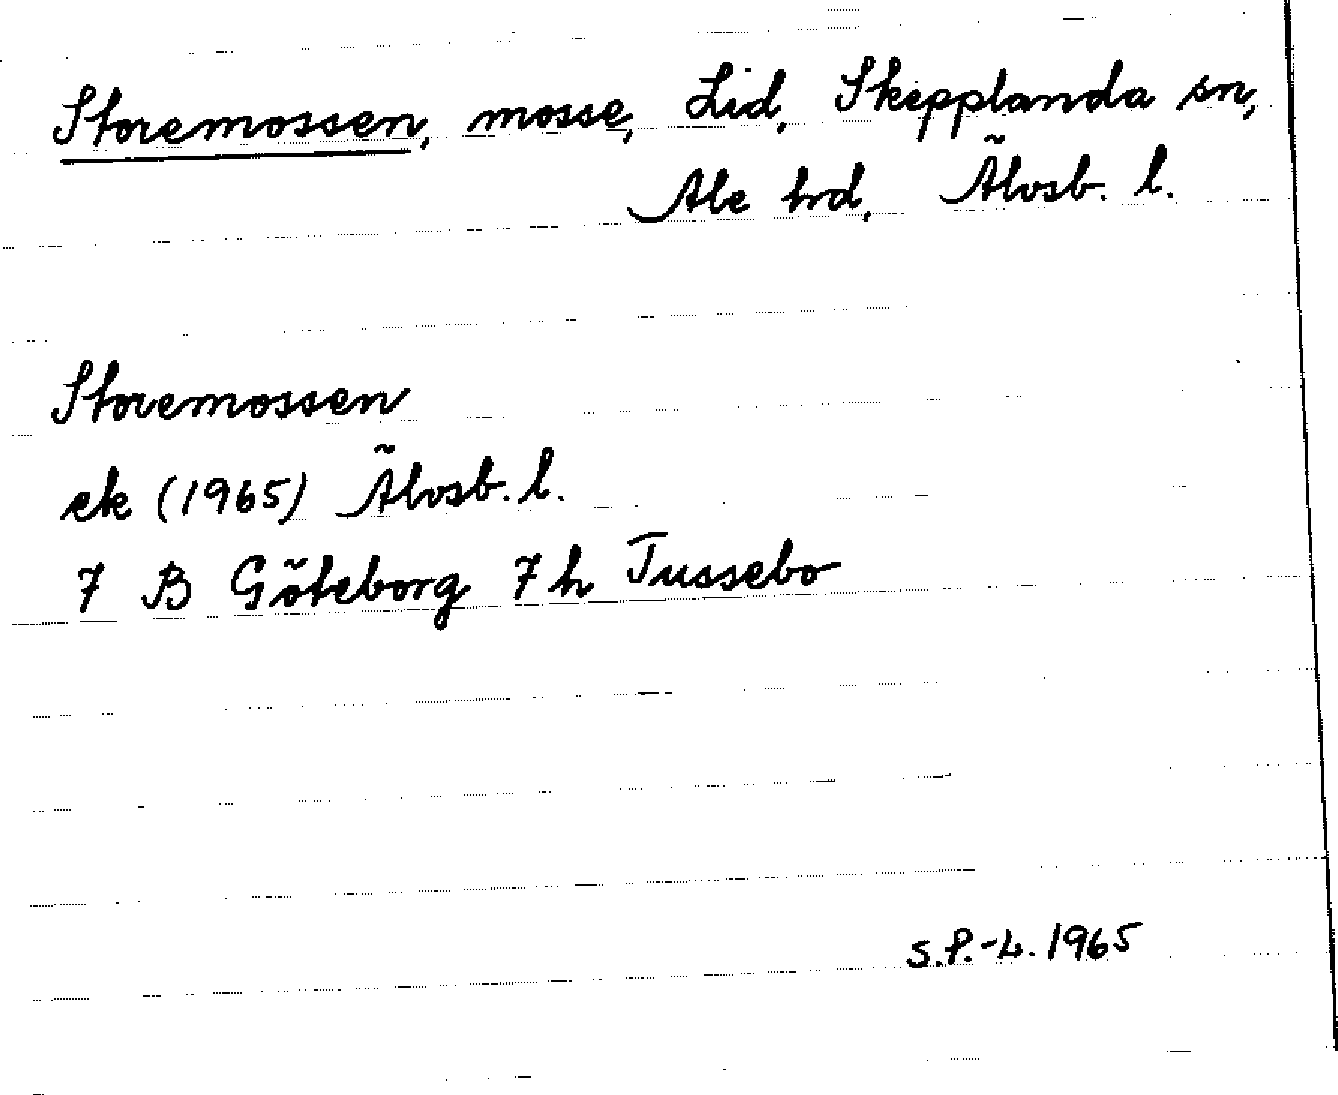 Storemossen, mosse, Lid, Skepplanda sn,
Ale hrd, Älvsb. l.
Storemossen
ek (1965) Älvsb. l.
7 B Göteborg 7 h Tussebo
S.P.-L. 1965